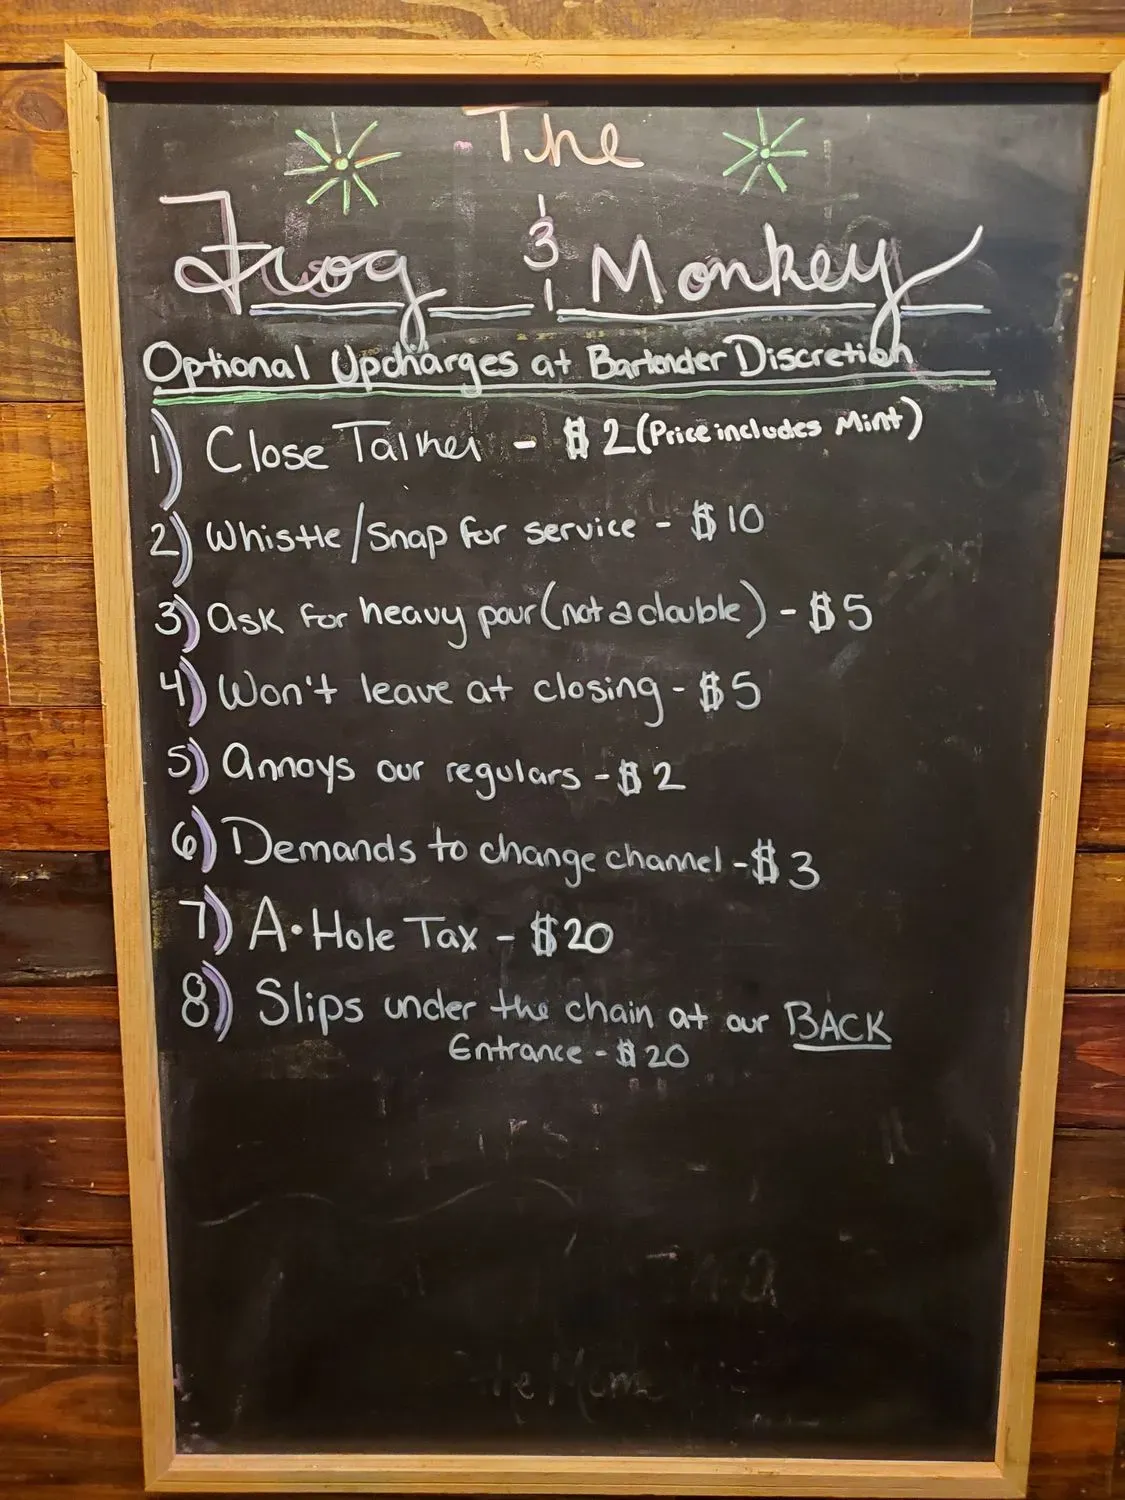 The
Frog & Monkey
Optional Upcharges at Bartender Discretion
1) Close Talker - $2 (Price includes Mint)
2) Whistle/Snap for service - $10
3) Ask for heavy pour (not a double) - $5
4) Won't leave at closing - $5
5) Annoys our regulars - $2
6) Demands to change channel - $3
7) A-Hole Tax - $20
8) Slips under the chain at our BACK
Entrance - $20